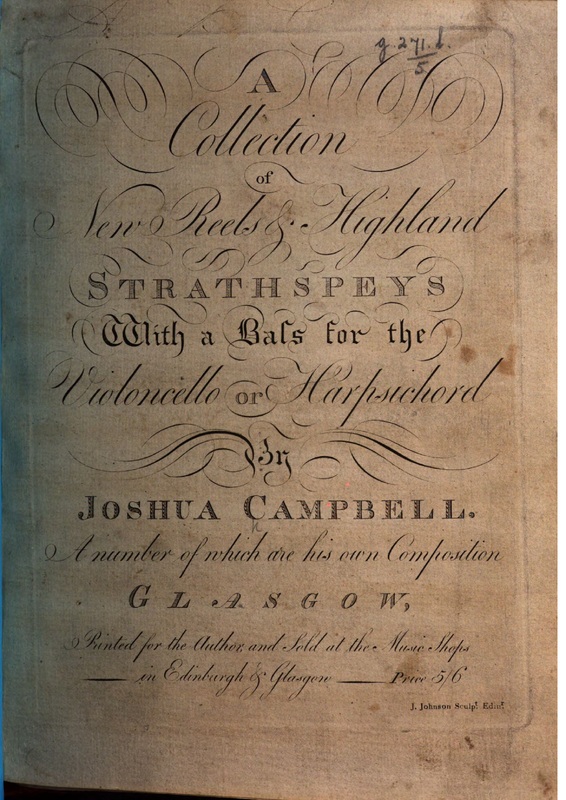 g.271.d.
5
A
Collection
of
New Reels & Highland
STRATHSPEYS
With a Baſs for the
Violoncello or Harpsichord
By
JOSHUA CAMPBELL.
A number of which are his own Composition
GLASGOW,
Printed for the Author, and Sold at the Music Shops
in Edinburgh & Glasgow — Price 5/6
J. Johnson Sculpt. Edinr.